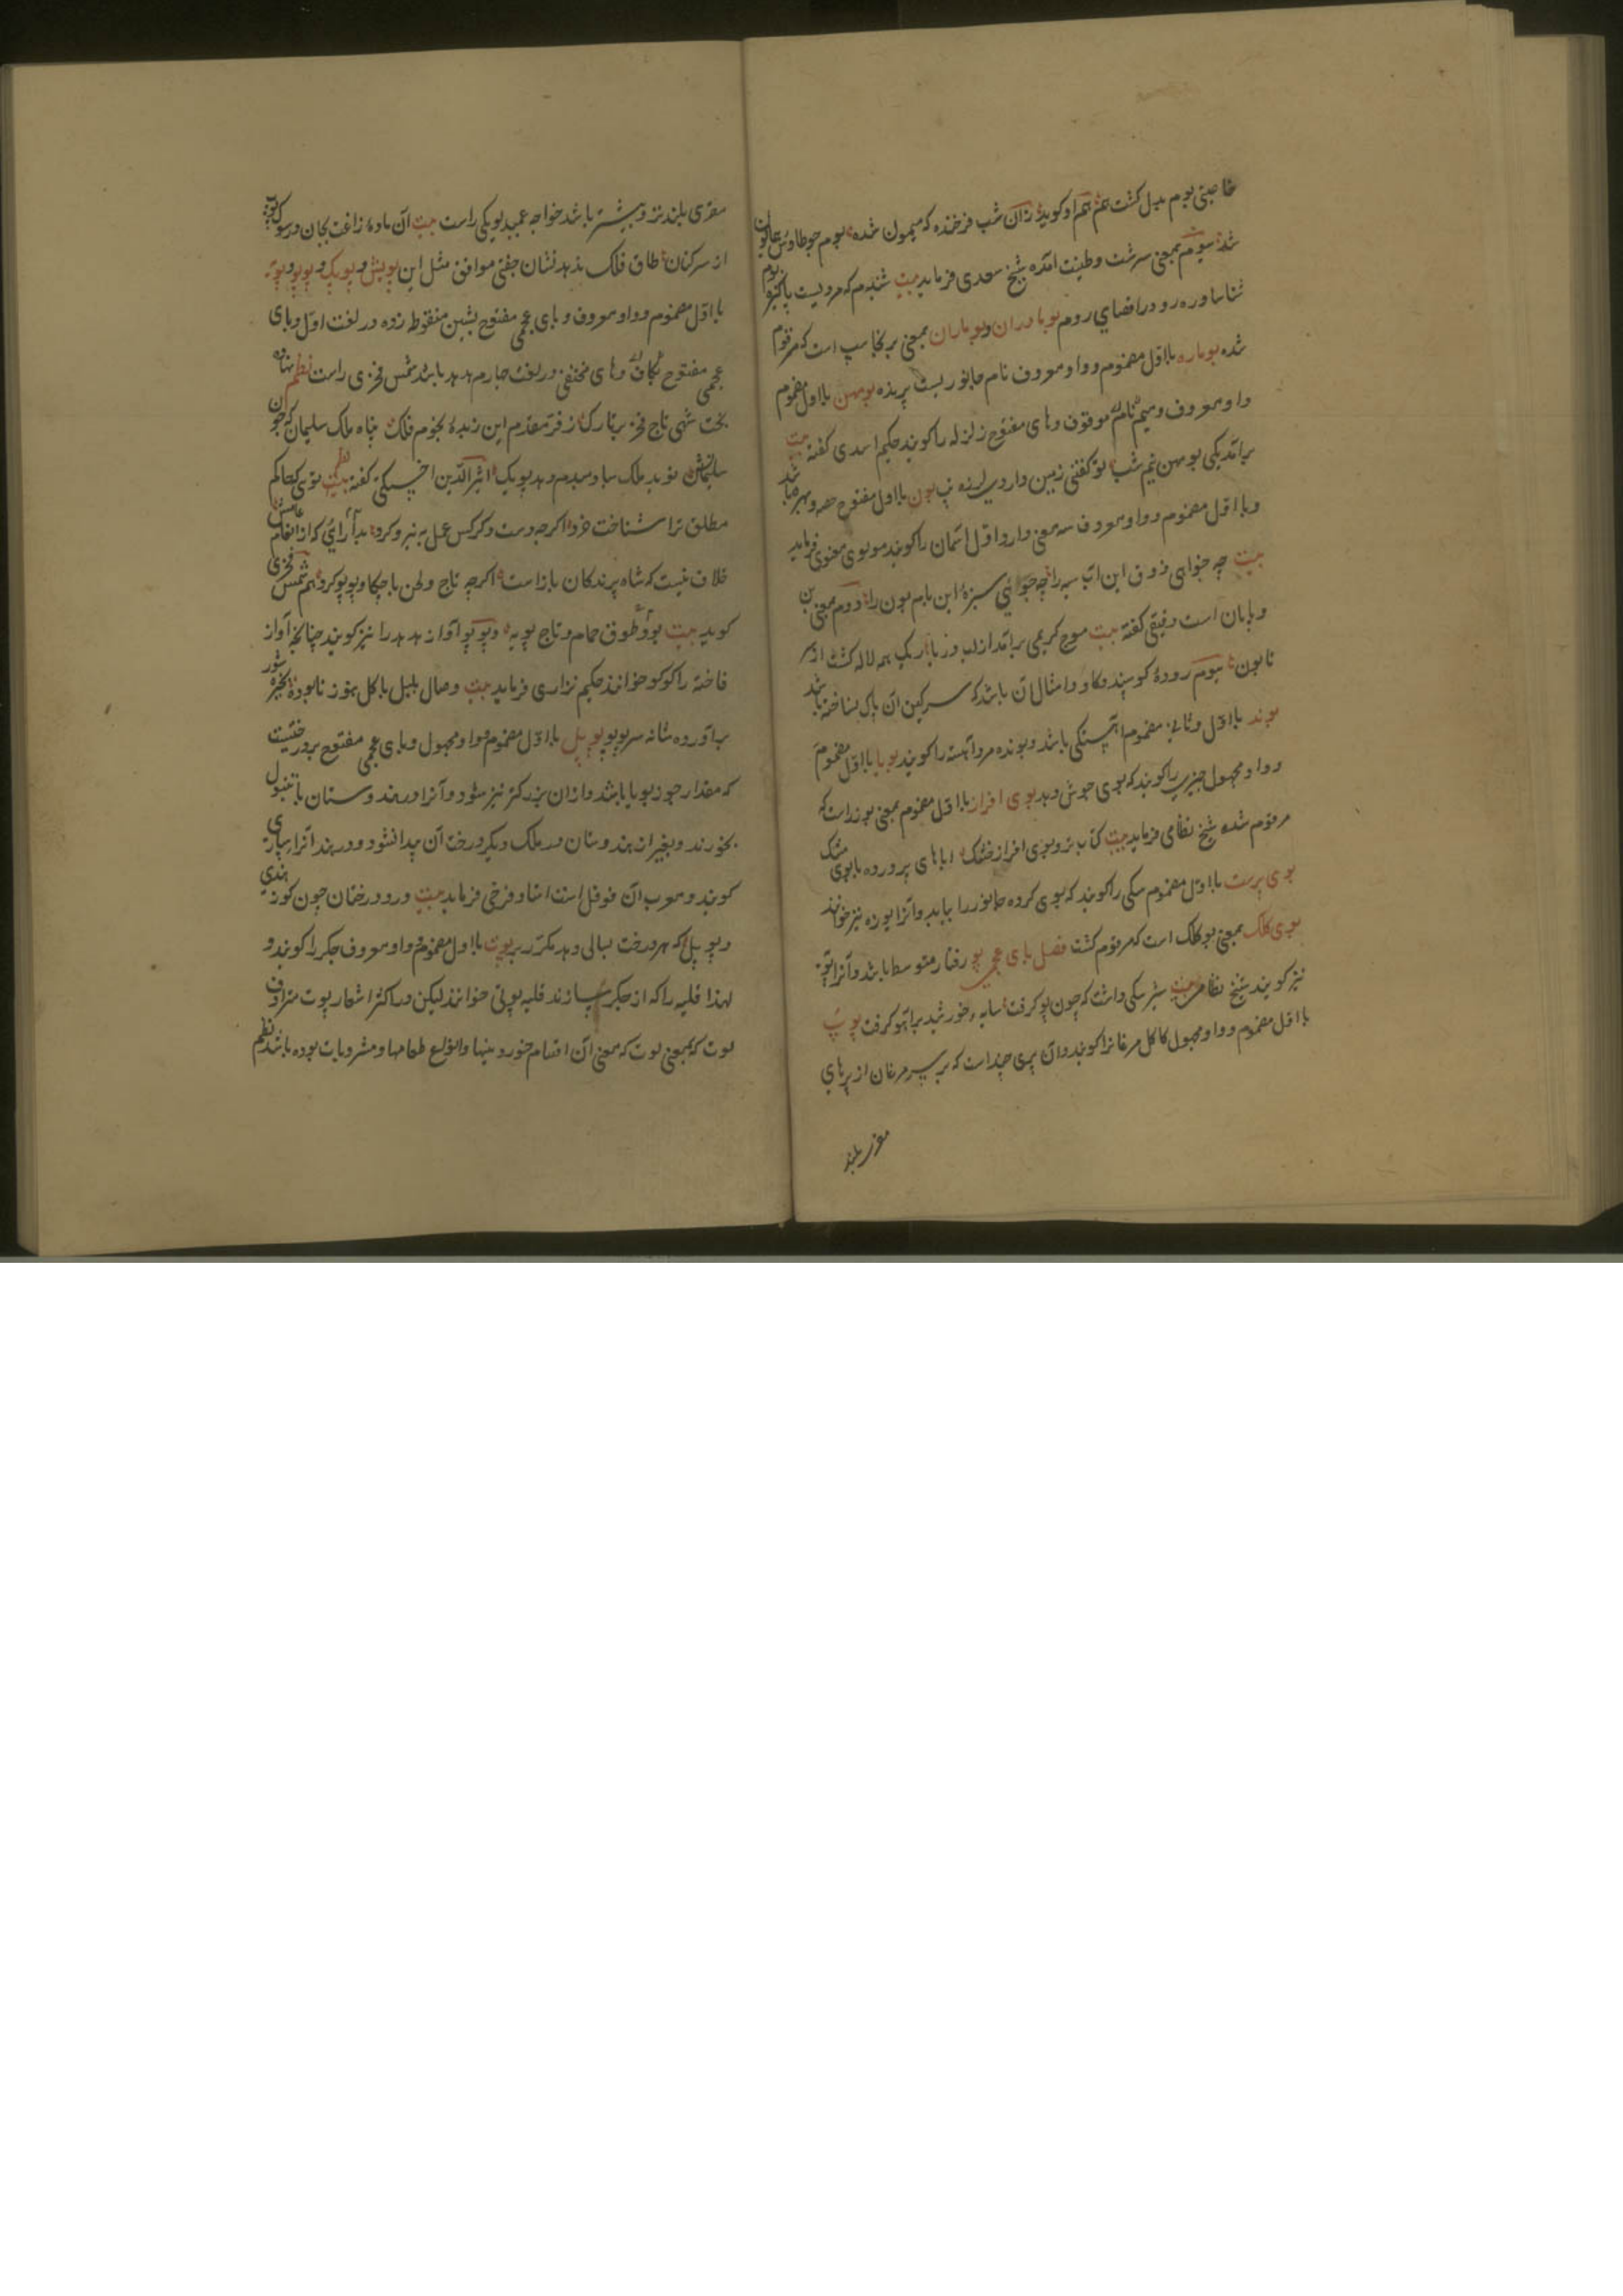 خاصیتی بوم مبدل کشت هم او کوید زان شب فرخنده که میمون شده بوم چو طاوس همایون
شد سیوم بمعنی سرشت و طینت آمده شیخ سعدی فرماید بیت شنیدم که مردیست پاکیزه بوم
شناسا و ره رو در اقصای روم بومادران و بوماران بمعنی برنجاسپ است که مرقوم
شده بوماره بااول مضموم و واو معروف نام جانوریست پرنده بومهن بااول مضموم
واو معروف و میم موقوف و های مفتوح زلزله را کویند حکیم اسدی کفته بیت
برآمد یکی بومهن نیم شب تو کفتی زمین دارد لرزه تب بون بااول مفتوح حصه و بهره باشد
و بااول مضموم و واو معروف سه معنی دارد اول آسمان را کویند مولوی معنوی فرماید
بیت چه خواهی ذوق این آب سیه را چه جوئی سبزۀ این بام بون را دوم بمعنی بن
و پایان است دقیقی کفته بیت موج کریمی برآمد از لب دریا ریک همه لاله کشت از سر
تا بون سیوم رودۀ کوسپند و کاو و امثال آن باشد که سرکین آن پاک نساخته باشد
بوند بااول و ثانی مضموم آهستکی باشد و بونده مرد آهسته را کویند بویا بااول مضموم
و واو مجهول چیزی را کویند که بوی خوش دهد بوی افزار بااول مضموم بمعنی بوزار است که
مرقوم شده شیخ نظامی فرماید بیت کباب تر و بوی افزار خشک اباهای پرورده با بوی مشک
بوی پرست بااول مضموم سکی را کویند که بوی کرده جانور را بیابد و آنرا یوزه نیز خوانند
بوی کلک بمعنی بوکلک است که مرقوم کشت فصل بای عجمی پو رفتار متوسط باشد و آنرا پویه
نیز کویند شیخ نظامی بیت سبز سکی داشت که چون پو کرفت سایه خورشید بر آهو کرفت پوپ
بااول مضموم و واو مجهول کاکل مرغانرا کویند و آن پری چند است که بر سر مرغان از پرهای
مغزی بلند
مغزی بلندتر و بیشتر باشد خواجه عمید لویکی راست بیت آن ماده زاغت بجان در سوک
از سرکنان طاق فلک بدهد نشان جفتی موافق مثل این پوپش و پوپک و پوپو و پوپه
بااول مضموم و واو معروف و بای عجمی مفتوح بشین منقوطه زده در لغت اول و بای
عجمی مفتوح بکاف و های مختفی در لغت چهارم هدهد باشد شمس فخری راست نظم نهاده
بخت شهی تاج فخر بر تارک ز فر مقدم این زبدۀ نجوم فلک پناه ملک سلیمان که چون
سلیمانش نوید ملک سبا دمبدم دهد پوپک اثیرالدین اخسیکتی کفته نظم تویی که حاکم
مطلق ترا شناخت خرد اکر چه دست و کرکس عمل به نیرو کرد بدا رأئی که از انعام
خلاف نیست که شاه پرندکان باز است اکر چه تاج و لحن با چکاو پوپو کرد هم شمس فخری
کوید بیت بود طوق حمام و تاج پوپه و پوپو آواز هدهد را نیز کویند چنانچه آواز
فاخته را کوکو خوانند حکیم نزاری فرماید بیت وصال بلبل با کل هنوز نابوده
برآورده شانه سر پوپو پوپل بااول مضموم و واو مجهول و بای عجمی مفتوح بر درختیست
که مقدار جوزبویا باشد و از آن بزرکتر نیز شود و آنرا در هندوستان با تنبول
بخورند و بغیر از هندوستان در ملک دیکر درخت آن پیدا نشود و در هند آنرا سپاری
کویند و معرب آن فوفل است استاد فرخی فرماید بیت درو درختان چون کوز هندی
و پوپل که هر درخت بسالی دهد مکرر بر پوت بااول مضموم و واو معروف جکر را کویند و
لهذا قلیه را که از جکر سازند قلیه پوتی خوانند لیکن در اکثر اشعار پوت مترادف
لوت که بمعنی لوت که بمعنی آن اقسام خوردنیها و انواع طعامها و مشروبات بوده باشد نظم